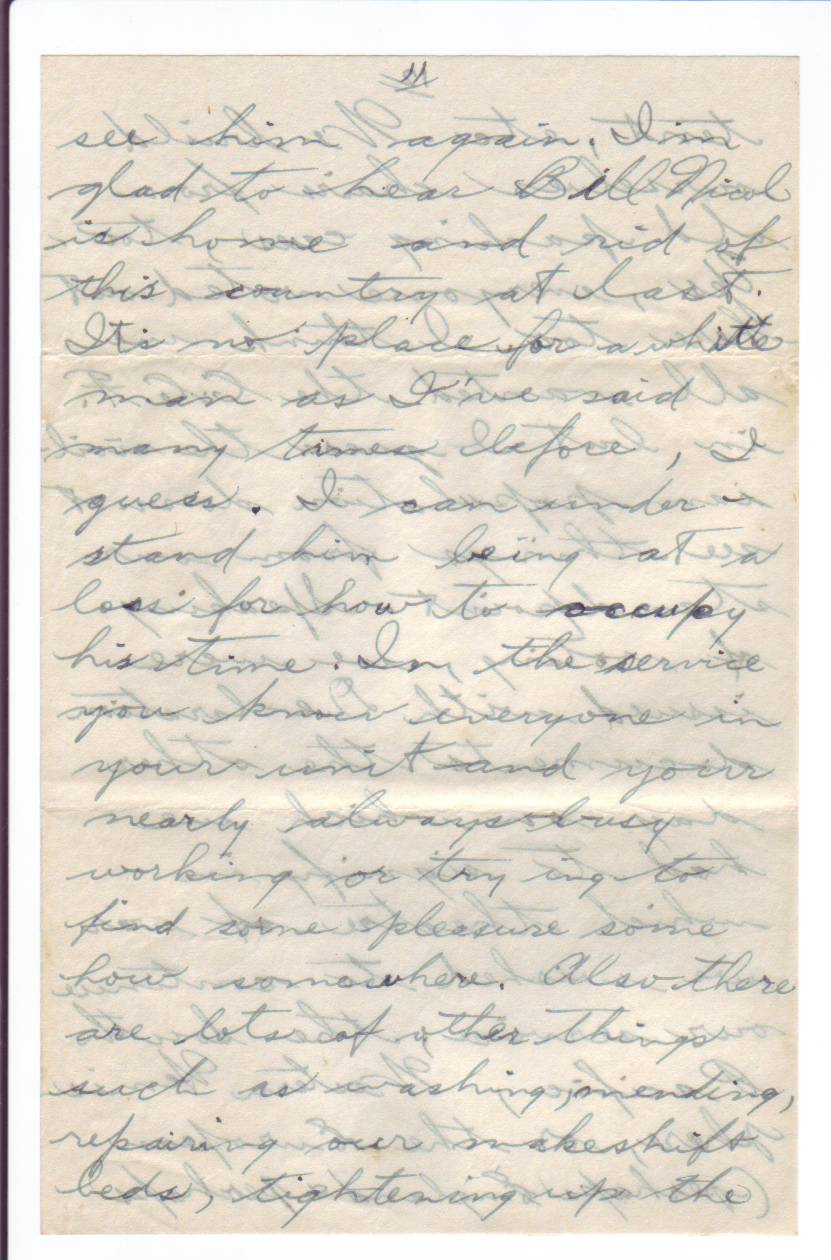 11
see him again. I'm
glad to hear Bill Nicol
is home and rid of
this country at last.
It's no place for a white
man as I've said
many times before, I
guess. I can under-
stand him being at a
loss for how to occupy
his time. In the service
you know everyone in
your unit and your
nearly always busy
working or trying to
find some pleasure some
how somewhere. Also there
are lots of other things
such as washing, mending,
repairing our makeshift
beds, tightening up the